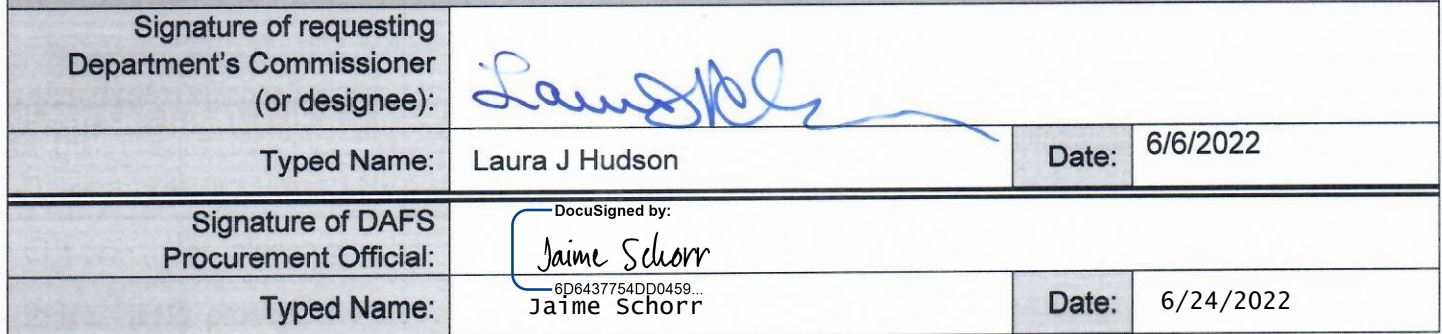 Signature of requesting
Department's Commissioner
(or designee):
Typed Name: Laura J Hudson Date: 6/6/2022
Signature of DAFS
Procurement Official:
DocuSigned by:
Jaime Schorr
6D6437754DD0459...
Typed Name: Jaime Schorr Date: 6/24/2022